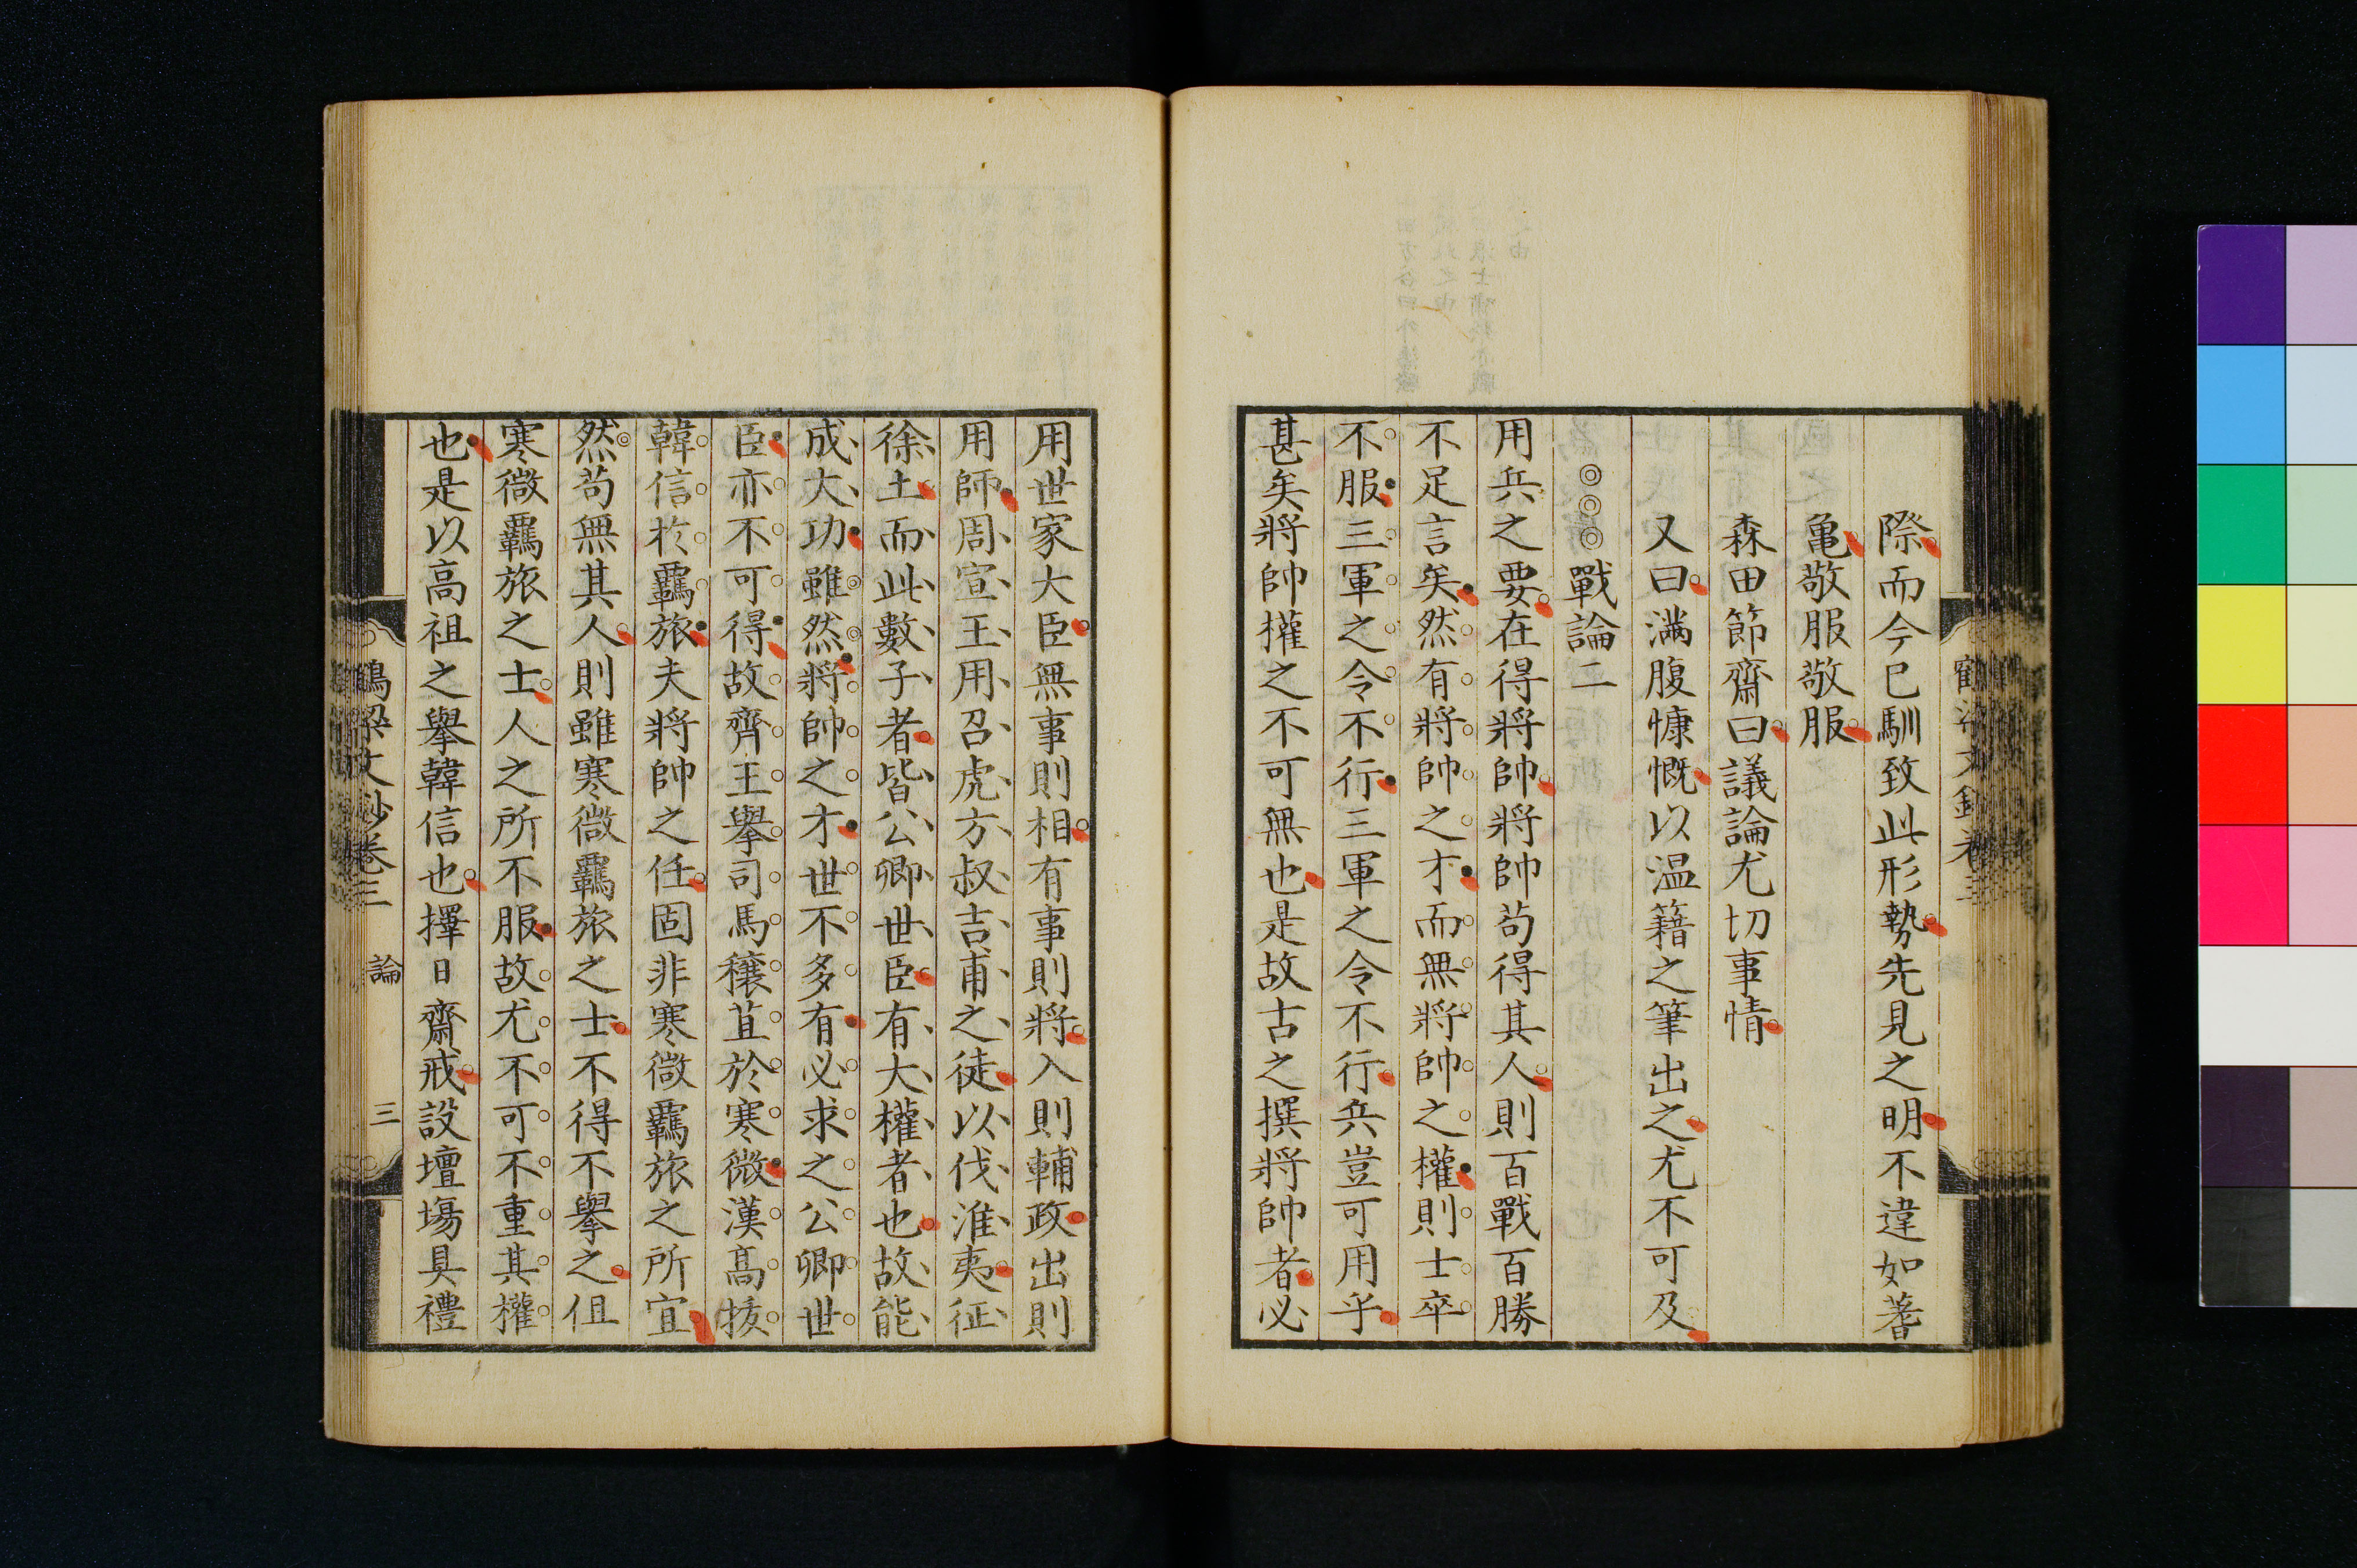 際而今已馴致此形勢先見之明不違如蓍
亀敬服敬服
森田節齋曰議論尤切事情
又曰滿腹慷慨以温籍之筆出之尤不可及
◎◎◎戰論二
用兵之要在得將帥將帥苟得其人則百戰百勝
不足言矣然有將帥之才而無將帥之權則士卒
不服三軍之令不行三軍之令不行兵豈可用乎
甚矣將帥權之不可無也是故古之撰將帥者必
用世家大臣無事則相有事則將入則輔政出則
用師周宣王用召虎方叔吉甫之徒以伐淮夷征
徐土而此數子者皆公卿世臣有大權者也故能
成大功雖然將帥之才世不多有必求之公卿世
臣亦不可得故齊王擧司馬穰苴於寒微漢高拔
韓信於覊旅夫將帥之任固非寒微覊旅之所宜
然苟無其人則雖寒微覊旅之士不得不擧之但
寒微覊旅之士人之所不服故尤不可不重其權
也是以高祖之擧韓信也擇日齋戒設壇塲具禮
鶴梁文鈔卷三 論 三